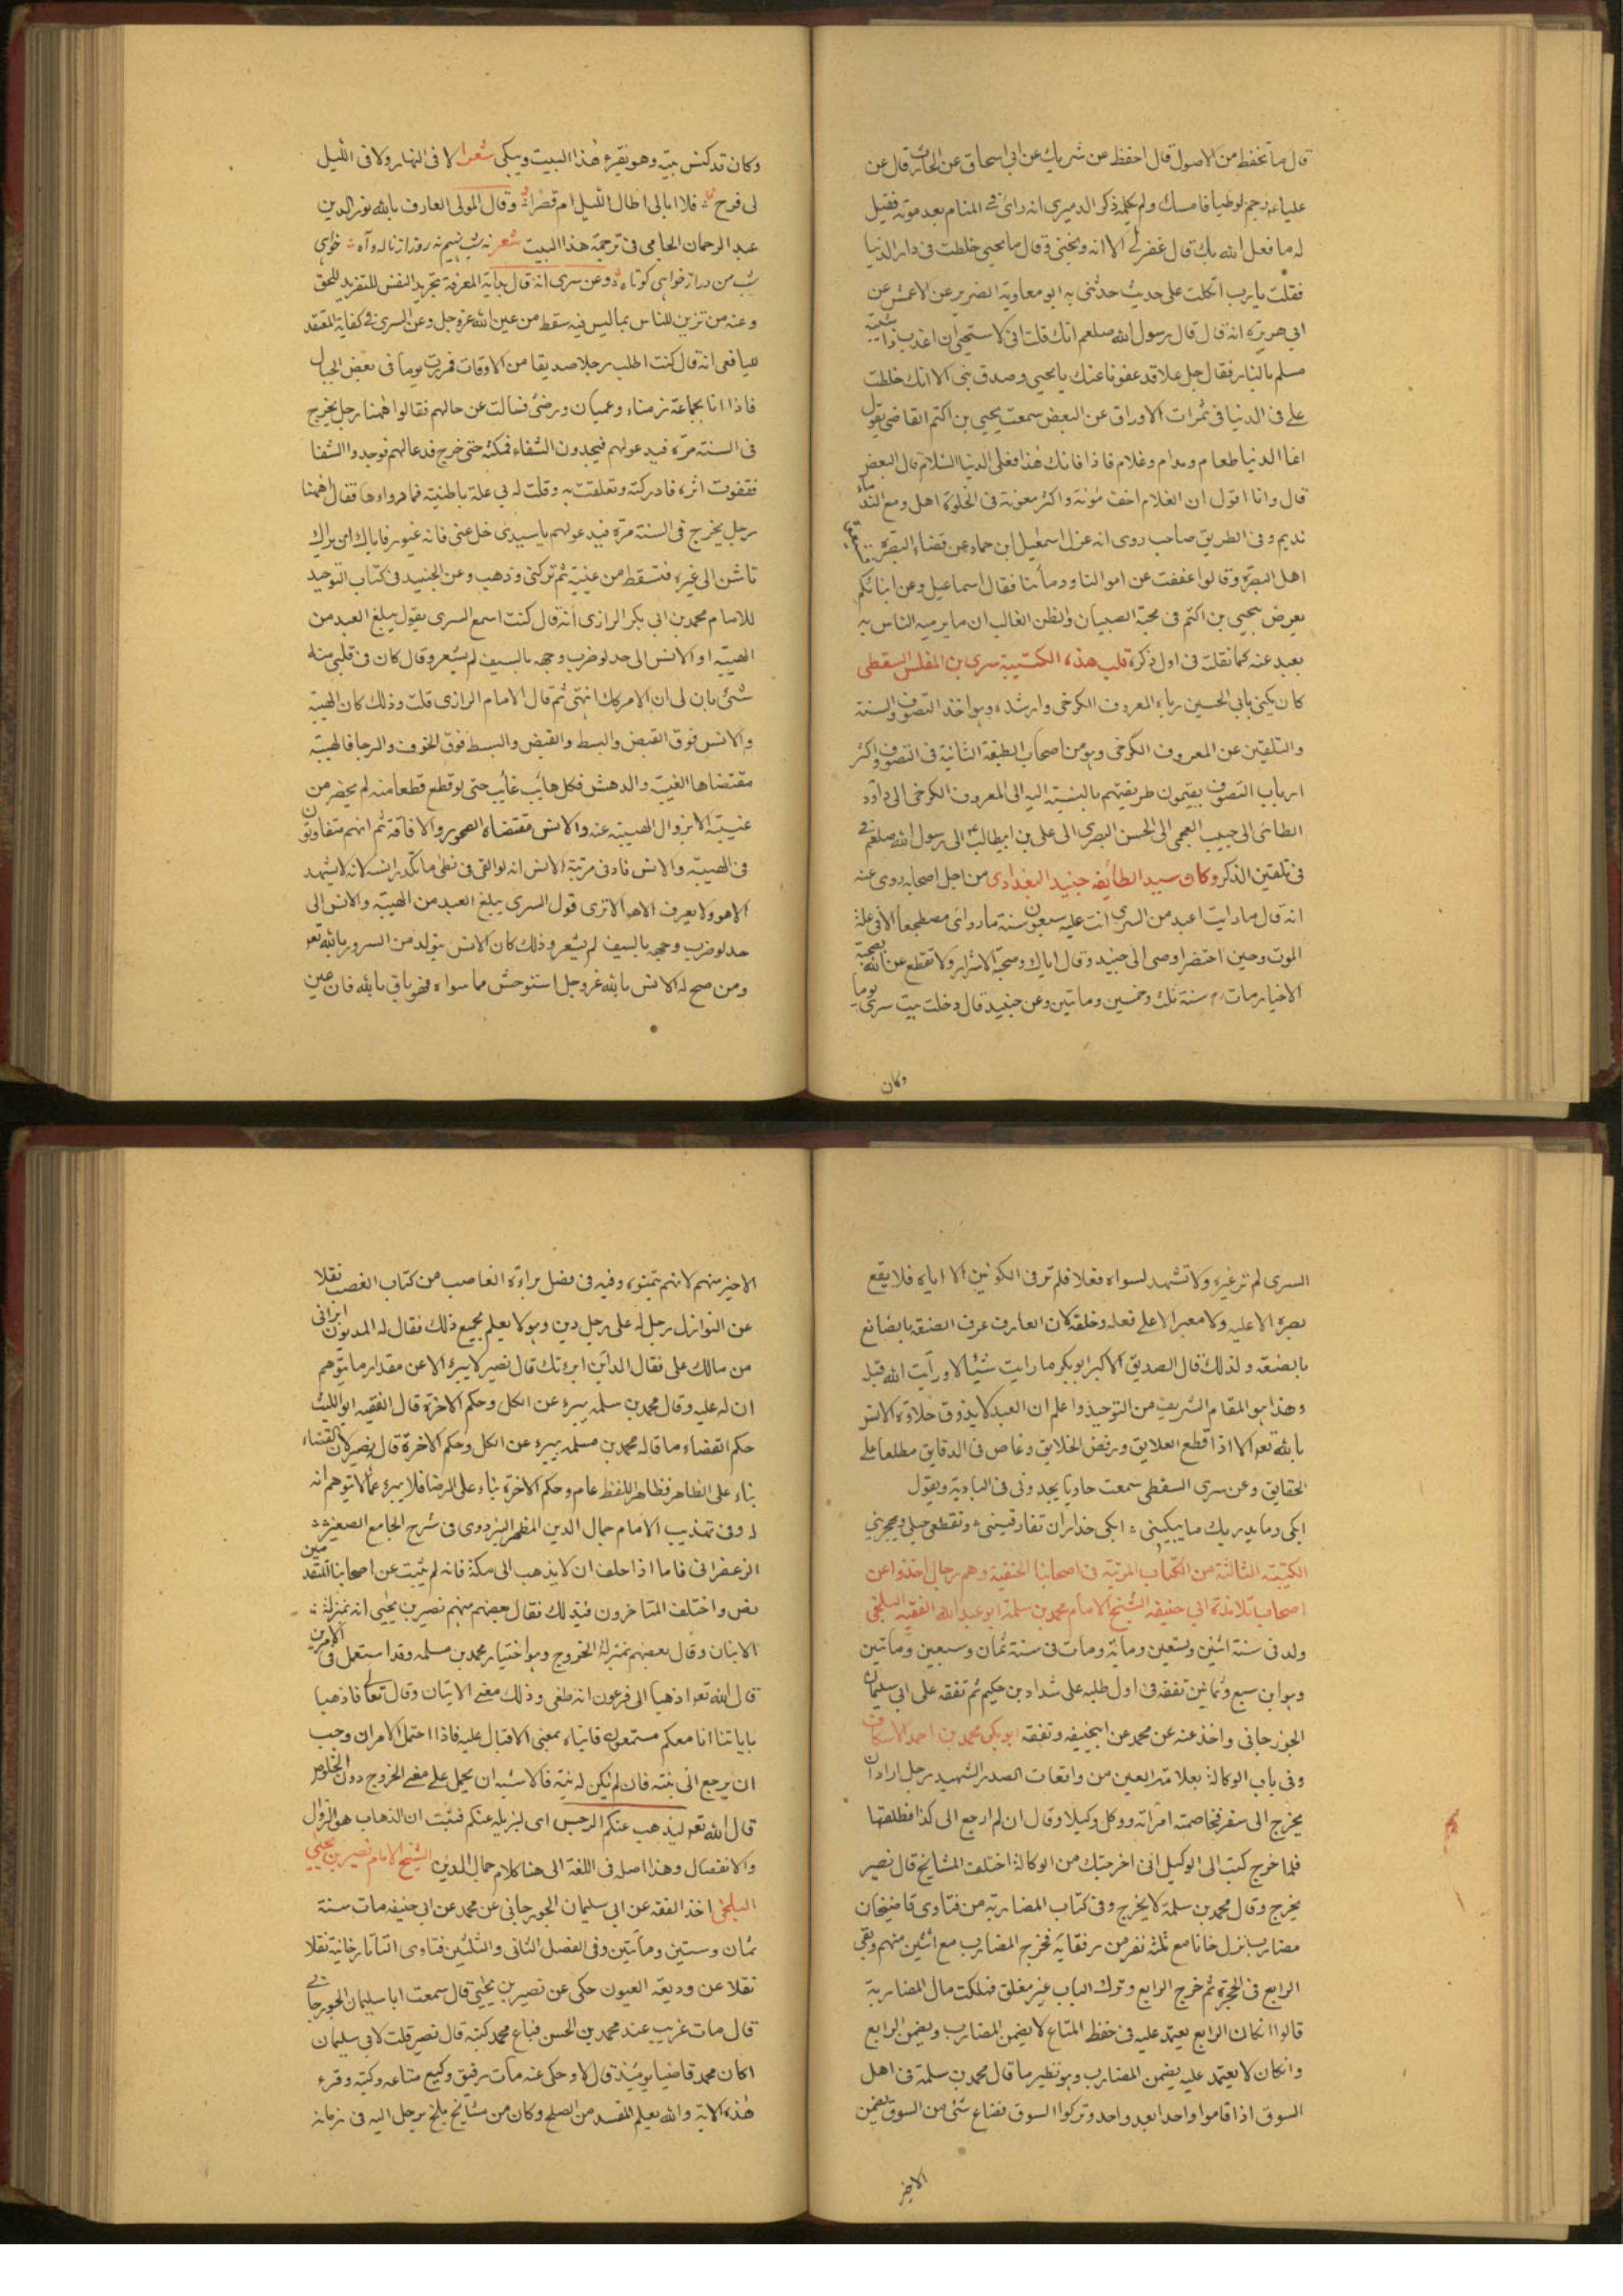 قال ما تحفظ من الاصول قال احفظ عن شريك عن ابي اسحاق عن الحارث قال عن
عليا رجم لوطيا فامسك ولم يكلمه ذكر الدميري انه رائ في المنام بعد موته فقيل
له ما فعل الله بك قال غفر لي الا انه وبخني وقال ما يحيى خلطت في دار الدنيا
فقلت يا رب اتكلت على حديث حدثني به ابو معاوية الضرير عن الاعمش عن
ابي هريرة انه قال قال رسول الله صلعم انك قلت اني لا ستحيي ان اعذب ذا شيبة
مسلم بالنار فقال جل علا قد عفونا عنك يا يحيى وصدق نبي الا انك خلطت
علي في الدنيا في ثمرات الاوراق عن البعض سمعت يحيى بن اكثم القاضي يقول
انما الدنيا طعام ومدام وغلام فاذا فاتك هذا فعلى الدنيا السلام قال البعض
قال وانا اقول ان الغلام اخف مؤنة واكثر معونة في الخلوة اهل ومع الندماء
نديم وفي الطريق صاحب روى انه عزل اسمعيل ابن حماد عن قضاء البصرة
اهل البصرة وقالوا عففت عن اموالنا ودمائنا فقال اسماعيل وعن ابنائكم
يعرض بيحيى بن اكثم في محبة الصبيان والظن الغالب ان ما يرميه الناس به
بعيد عنه كما نقلته في اول ذكره قلب هذه الكتيبة سري بن المفلس السقطي
كان يكنى بابي الحسين رباه المعروف الكرخي وارشده وهو اخذ التصوف والسنة
والتلقين عن المعروف الكرخي وهو من اصحاب الطبقة الثانية في التصوف واكثر
ارباب التصوف يقيمون طريقتهم بالنسبة اليه الى المعروف الكرخي الى داود
الطائي الى حبيب العجمي الى الحسن البصري الى علي بن ابيطالب الى رسول الله صلعم
في تلقين الذكر وكان سيد الطائفه جنيد البغدادي من اجل اصحابه روى عنه
انه قال ما رايت اعبد من السري اتت عليه سبعون سنة ما روائ مضطجعا الا في علة
الموت وحين احتضر اوصى الى جنيد وقال اياك وصحبة الاشرار ولا تقطع عن الله بصحبة
الاخيار مات سنة ثلث وخمسين وماتين وعن جنيد قال دخلت بيت سري يوما
وكان
وكان قد كنس بيته وهو يقرء هذا البيت ويبكي شعرا لا في النهار ولا في الليل
لي فرح فلا ابالي اطال الليل ام قصرا وقال المولى العارف بالله نور الدين
عبد الرحمان الجامي في ترجمة هذا البيت شعر نه شب نيم نه روز از ناله وآه خواهى
شب من دراز خواهى كوتاه وعن سري انه قال بداية المعرفة تجريد النفس للتفريد للحق
وعنه من تزين للناس بما ليس فيه سقط من عين الله عز وجل وعن السري في كفاية المعتقد
لليافعي انه قال كنت اطلب رجلا صديقا من الاوقات فمررت يوما في بعض الجبال
فاذا انا بجماعة زمناء وعميان ومرضى فسالت عن حالهم فقالوا ههنا رجل يخرج
في السنة مرة فيدعو لهم فيجدون الشفاء فمكثت حتى خرج فدعا لهم فوجدوا الشفا
فقفوت اثره فادركته وتعلقت به وقلت له بي علة باطنية فما دواءها فقال ههنا
رجل يخرج في السنة مرة فيدعو لهم يا سيدي خل عني فانه غيور فاياك ان يراك
تانس الى غيره فتسقط من عينيه ثم تركني وذهب وعن الجنيد في كتاب التوحيد
للامام محمد بن ابي بكر الرازي انه قال كنت اسمع السري يقول يبلغ العبد من
الهيبة او الانس الى حد لو ضرب وجهه بالسيف لم يشعر وقال كان في قلبي منه
شئ بان لي ان الامر كك انتهى ثم قال الامام الرازي قلت وذلك كان الهيبة
والانس فوق القبض والبسط والقبض والبسط فوق الخوف والرجا فالهيبة
مقتضاها الغيبة والدهش فكل هائب غائب حتى لو قطع قطعا منه لم يحضر من
غيبته الا بزوال الهيبة عنه والانس مقتضاه الصحو والافاقة ثم انهم متفاوتون
في الهيبة والانس فادنى مرتبة الانس انه لو القي في نطى ما تكدر انسه لانه لا يشهد
الاهو ولا يعرف الاهو الا ترى قول السري يبلغ العبد من الهيبة والانس الى
حد لو ضرب وجهه بالسيف لم يشعر وذلك كان الانس يتولد من السرور بالله تعو
ومن صح له الانس بالله عز وجل استوحش مما سواه فهو باق بالله فان عين
السري لم تر غيره ولا تشهد لسواه فعلا فلم تر في الكونين الا اياه فلا يقع
بصره الا عليه ولا معبرا الا على فعله وخلقه لان العارف عرف الصنعه بالصانع
بالصنعه ولذلك قال الصديق الاكبر ابو بكر ما رايت شيئا الا ورايت الله قبله
وهذا هو المقام الشريف من التوحيد واعلم ان العبد لا يذوق حلاوة الانس
بالله تعو الا اذا قطع العلايق ورفض الخلايق وغاص في الدقايق مطلعا على
الحقايق وعن سري السقطي سمعت حاديا يجدو في البادية ويقول
ابكي وما يدريك ما يبكيني ابكي حذار ان تفارقيني وتقطعي حبلي وتهجريني
الكتيبة الثالثة من الكتياب المرتبة في اصحابنا الحنفية وهم رجال اخذوا عن
اصحاب تلامذة ابي حنيفه الشيخ الامام محمد بن سلمة ابو عبد الله الفقيه البلخي
ولد في سنة اثنين وتسعين ومائة ومات في سنة ثمان وسبعين وماتين
وهو ابن سبع وثمانين تفقه في اول طلبه على شداد بن حكيم ثم تفقه على ابي سليمان
الجوزجاني واخذ عنه عن محمد عن ابيحنيفه وتفقه ابو بكر محمد بن احمد الاسكاف
وفي باب الوكالة بعلامة العين من واقعات الصدر الشهيد رجل اراد ان
يخرج الى سفر فخاصمته امراته ووكل وكيلا وقال ان لم ارجع الى كذا فطلقها
فلما خرج كتب الى الوكيل اني اخرجتك من الوكالة اختلف المشائخ قال نصير
يخرج وقال محمد بن سلمة لا يخرج وفي كتاب المضاربة من فتاوى قاضيخان
مضارب نزل خانا مع ثلثة نفر من رفقائه فخرج المضارب مع اثنين منهم وبقي
الرابع في الحجرة ثم خرج الرابع وترك الباب غير مغلق فهلكت مال المضاربة
قالوا انكان الرابع يعتمد عليه في حفظ المتاع لا يضمن المضارب ويضمن الرابع
وانكان لا يعتمد عليه يضمن المضارب وهو نظير ما قال محمد بن سلمة في اهل
السوق اذا قاموا واحدا بعد واحد وتركوا السوق فضاع شئ من السوق يضمن
الاخير
الاخير منهم لانهم يتمنوه وفيه في فصل براءة الغاصب من كتاب الغصب نقلا
عن النوازل رجل له على رجل دين وهو لا يعلم بجميع ذلك فقال له المديون ابراني
من مالك علي فقال الدائن ابرءتك قال نصير لا يبرء الا عن مقدار ما يتوهم
ان له عليه وقال محمد بن سلمه يبرء عن الكل وحكم الاخرة قال الفقيه ابو الليث
حكم القضاء ما قاله محمد بن مسلمه يبرء عن الكل وحكم الاخرة قال نصير لان القضاء
بناء على الظاهر فظاهر اللفظ عام وحكم الاخرة بناء على الرضا فلا يبرء عما لا يتوهم انه
له وفي تهذيب الامام جمال الدين المطهر اليزدوى في شرح الجامع الصغير
الزعفراني فاما اذا حلف ان لا يذهب الى مكة فانه لم يثبت عن اصحابنا المتقدمين
نص واختلف المتاخرون فيذلك فقال بعضهم منهم نصير بن يحيى انه بمنزلة
الاتيان وقال بعضهم بمنزلة الخروج وهو اختيار محمد بن مسلمه وقد استعمل في الامرين
قال الله تعو اذهبا الى فرعون انه طغى وذلك معنى الاتيان وقال تعالى فاذهبا
باياتنا انا معكم مستمعون فاتياه بمعنى الاقبال عليه فاذا احتمل الامران وجب
ان يرجع الى نيته فان لم تكن له نية فالاشبه ان يحمل على معنى الخروج دون الخلوص
قال الله تعو ليذهب عنكم الرجس اى ليزيله عنكم فثبت ان الذهاب هو الزوال
والانفصال وهذا اصله في اللغة الى هنا كلام جمال الدين الشيخ الامام نصير بن يحيى
البلخي اخذ الفقه عن ابي سليمان الجوزجاني عن محمد عن ابي حنيفه مات سنة
ثمان وستين ومأتين وفي الفصل الثاني والثلثين فتاوى التاتارخانية نقلا
نقلا عن وديعة العيون حكى عن نصير بن يحيى قال سمعت ابا سليمان الجوزجاني
قال مات غريب عند محمد بن الحسن فباع محمد كتبه قال نصير قلت لابي سليمان
اكان محمد قاضيا يومئذ قال لا وحكى عنه مات رفيق وكيع متاعه وكتبه وقرء
هذه الاية والله يعلم المفسد من المصلح وكان من مشائخ بلخ يرحل اليه في زمانه